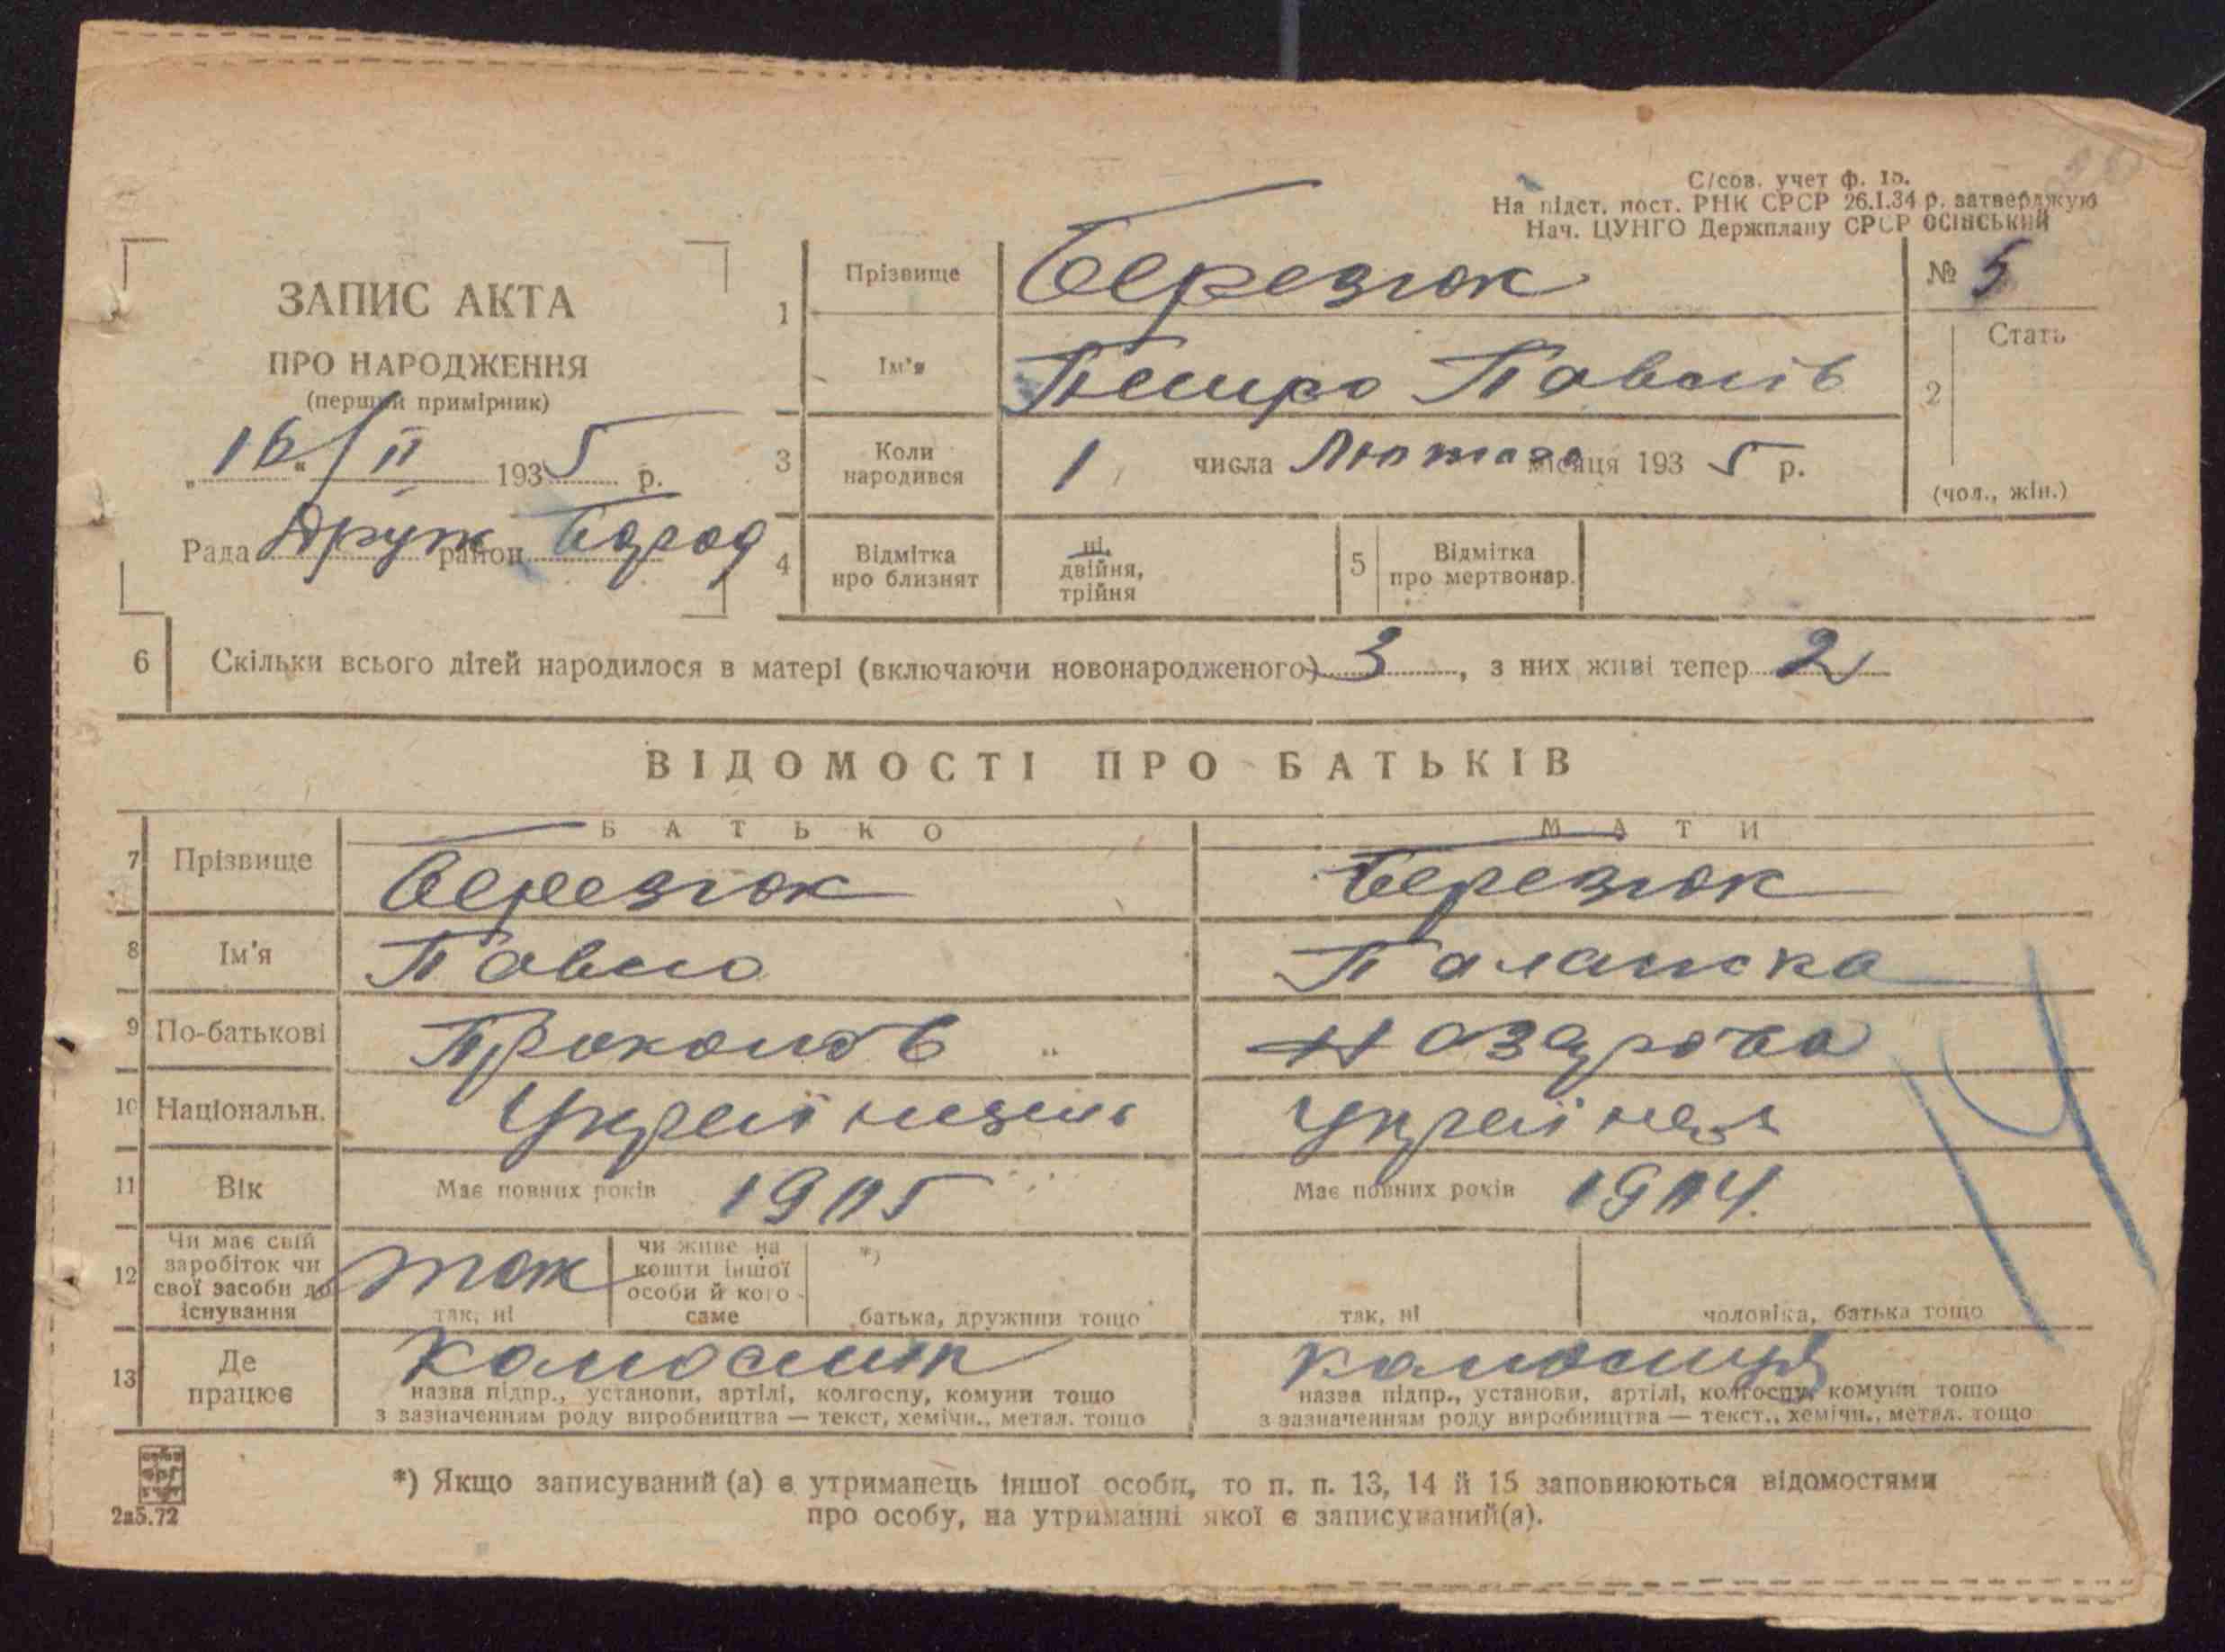 С/сов. учет ф. 1б.
На підст. пост. РНК СРСР 26.I.34 р. затверджую
Нач. ЦУНГО Держплану СРСР ОСІНСЬКИЙ
ЗАПИС АКТА
ПРО НАРОДЖЕННЯ
(перший примірник)
„16“ / II 1935 р.
Рада Друж район Бород
1 Прізвище Березюк № 5
Ім'я Петро Павлів
2 Стать
(чол., жін.)
3 Коли народився 1 числа Лютого місяця 1935 р.
4 Відмітка про близнят ні, двійня, трійня
5 Відмітка про мертвонар.
6 Скільки всього дітей народилося в матері (включаючи новонародженого) 3, з них живі тепер 2
ВІДОМОСТІ ПРО БАТЬКІВ
БАТЬКО МАТИ
7 Прізвище Березюк Березюк
8 Ім'я Павло Палажка
9 По-батькові Прокопів Назарова
10 Національн. Українець Українка
11 Вік Має повних років 1905 Має повних років 1904.
12 Чи має свій заробіток чи свої засоби до існування так так, ні чи живе на кошти іншої особи й кого саме *) батька, дружини тощо так, ні чоловіка, батька тощо
13 Де працює
назва підпр., установи, артілі, колгоспу, комуни тощо назва підпр., установи, артілі, колгоспу, комуни тощо
з зазначенням роду виробництва — текст, хемічн., метал. тощо з зазначенням роду виробництва — текст., хемічн., метал. тощо
2а5.72
*) Якщо записуваний (а) є утриманець іншої особи, то п. п. 13, 14 й 15 заповнюються відомостями
про особу, на утриманні якої є записуваний(а).